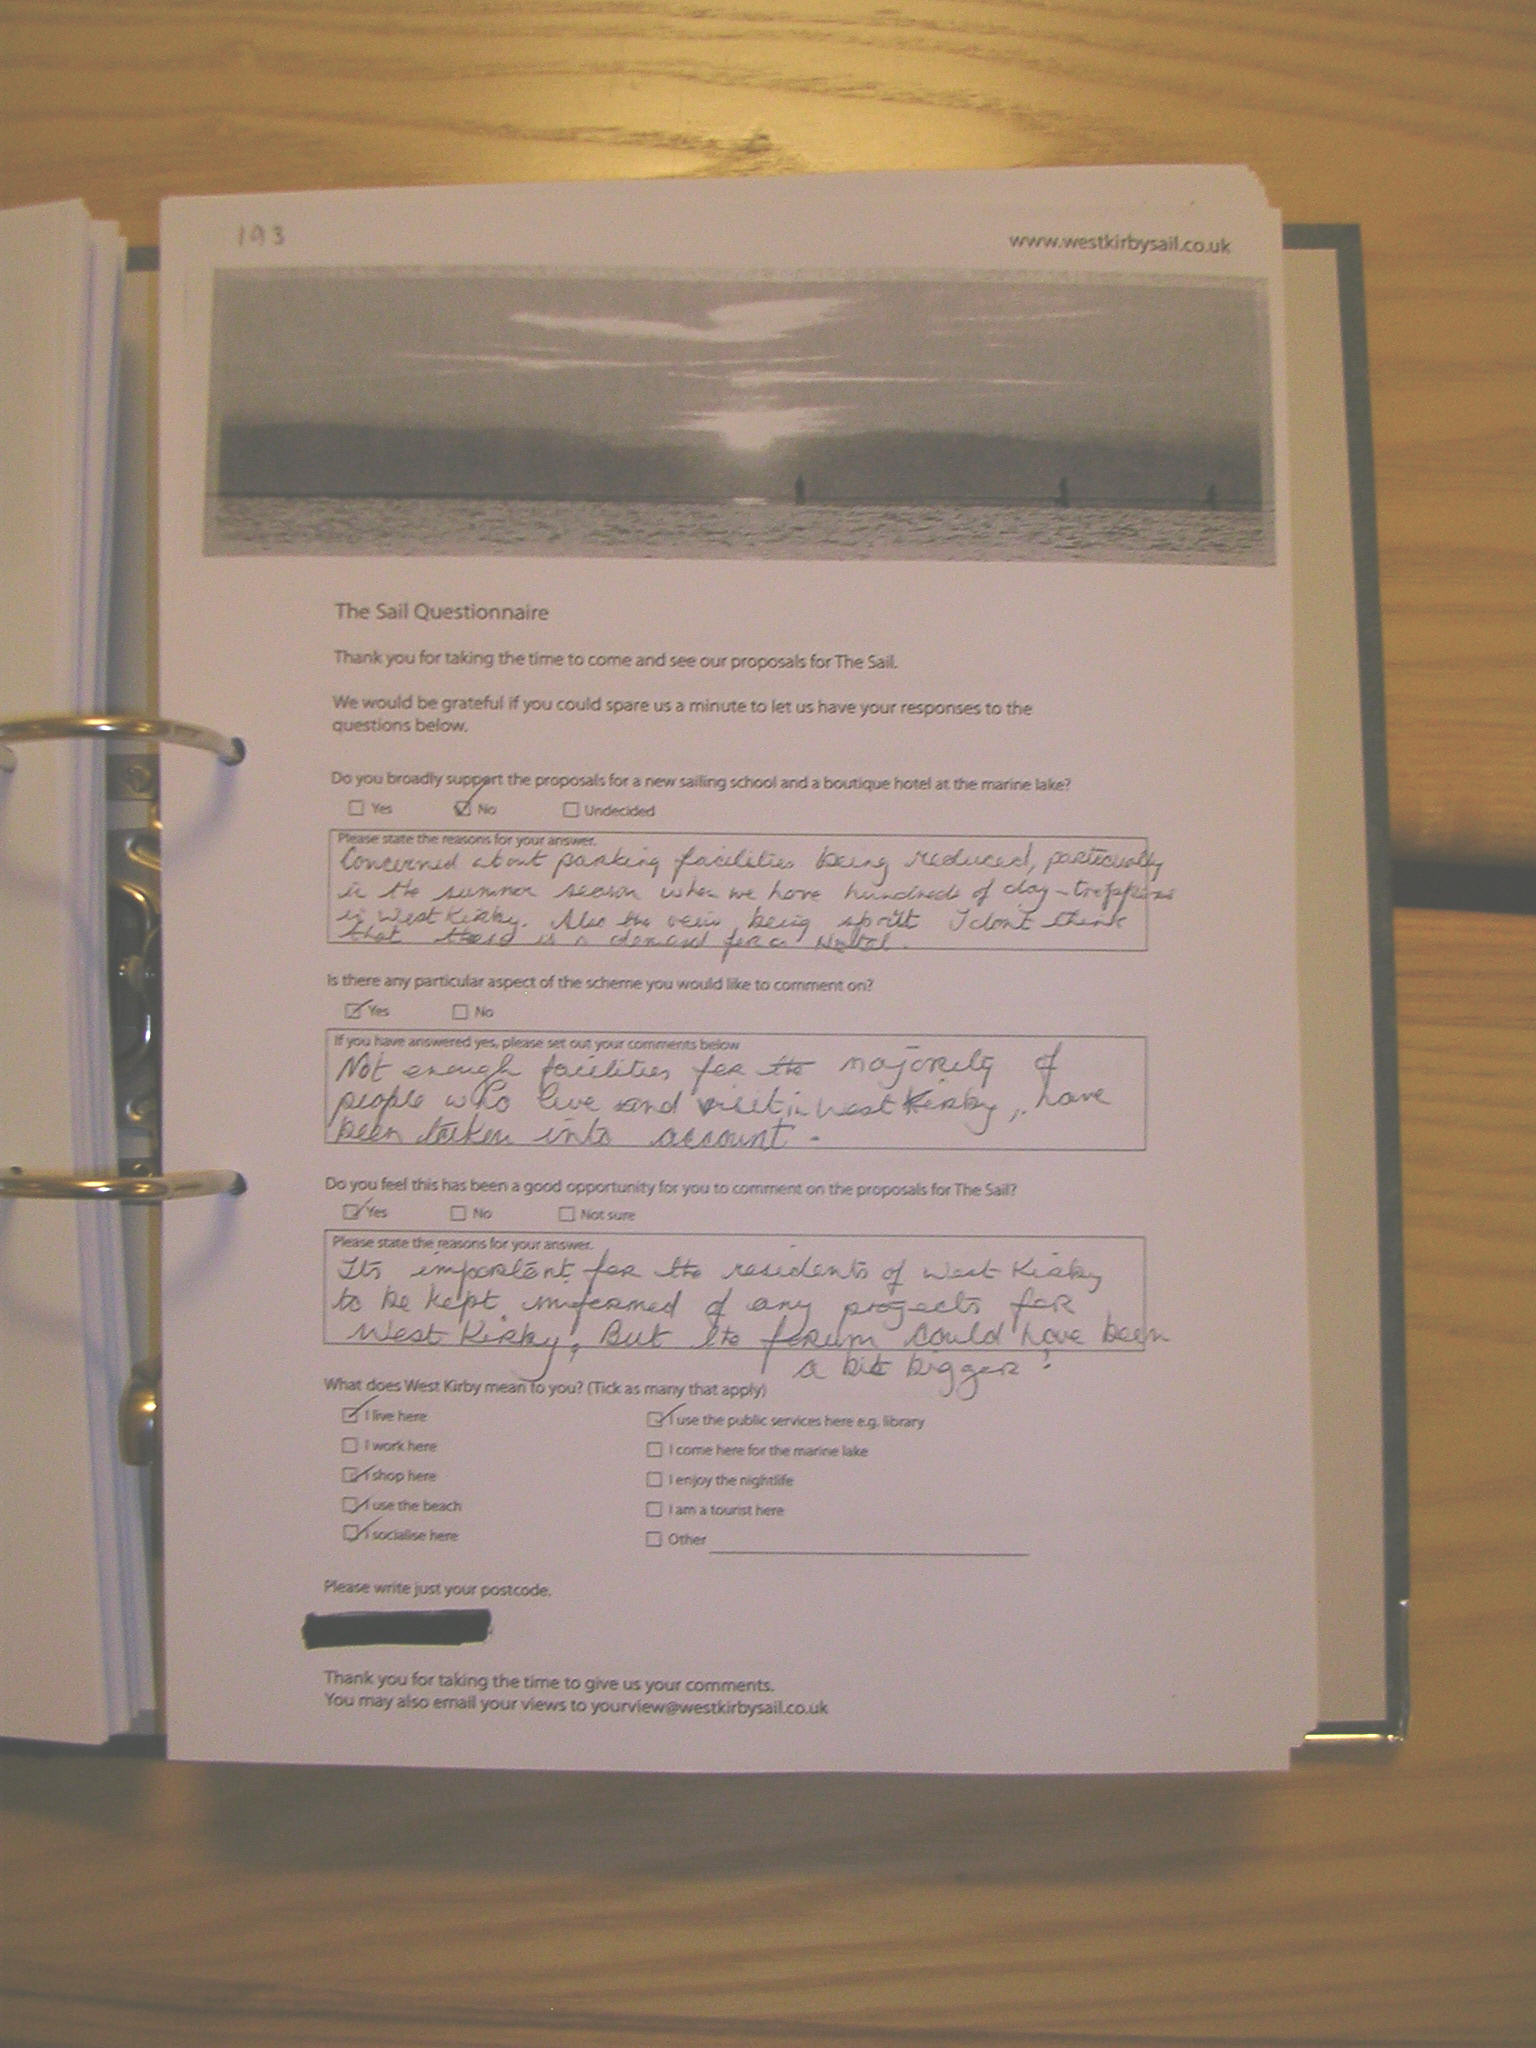 193
www.westkirbysail.co.uk
The Sail Questionnaire
Thank you for taking the time to come and see our proposals for The Sail.
We would be grateful if you could spare us a minute to let us have your responses to the
questions below.
Do you broadly support the proposals for a new sailing school and a boutique hotel at the marine lake?
Yes No Undecided
Please state the reasons for your answer.
Concerned about parking facilities being reduced, particually
in the summer season when we have hundreds of day-trippers
in West Kirby. Also the veiw being spoilt I dont think
that there is a demand for a Hotel.
Is there any particular aspect of the scheme you would like to comment on?
Yes No
If you have answered yes, please set out your comments below
Not enough facilities for the majority of
people who live and visit in West Kirby, have
been taken into account.
Do you feel this has been a good opportunity for you to comment on the proposals for The Sail?
Yes No Not sure
Please state the reasons for your answer.
Its important for the residents of West Kirby
to be kept informed of any projects for
West Kirby, But the forum could have been
a bit bigger!
What does West Kirby mean to you? (Tick as many that apply)
I live here I use the public services here e.g. library
I work here I come here for the marine lake
I shop here I enjoy the nightlife
I use the beach I am a tourist here
I socialise here Other
Please write just your postcode.
Thank you for taking the time to give us your comments.
You may also email your views to yourview@westkirbysail.co.uk